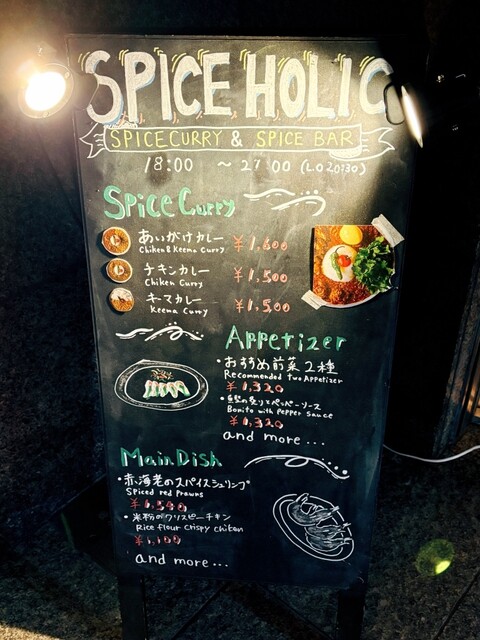 SPICE HOLIC
SPICECURRY & SPICE BAR
18:00 ~ 27:00 (L.O 26:30)
Spice Curry
あいがけカレー ¥1,600
Chiken&Keema Curry
チキンカレー ¥1,500
Chiken Curry
キーマカレー ¥1,500
Keema Curry
Appetizer
・おすすめ前菜2種
Recommended two Appetizer
¥1,320
・鰹の炙りとペッパーソース
Bonito with Pepper sauce
¥1,320
and more...
Main Dish
・赤海老のスパイスシュリンプ
Spiced red Prawns
・米粉のクリスピーチキン
Rice flour crispy chiken
¥1,100
and more...